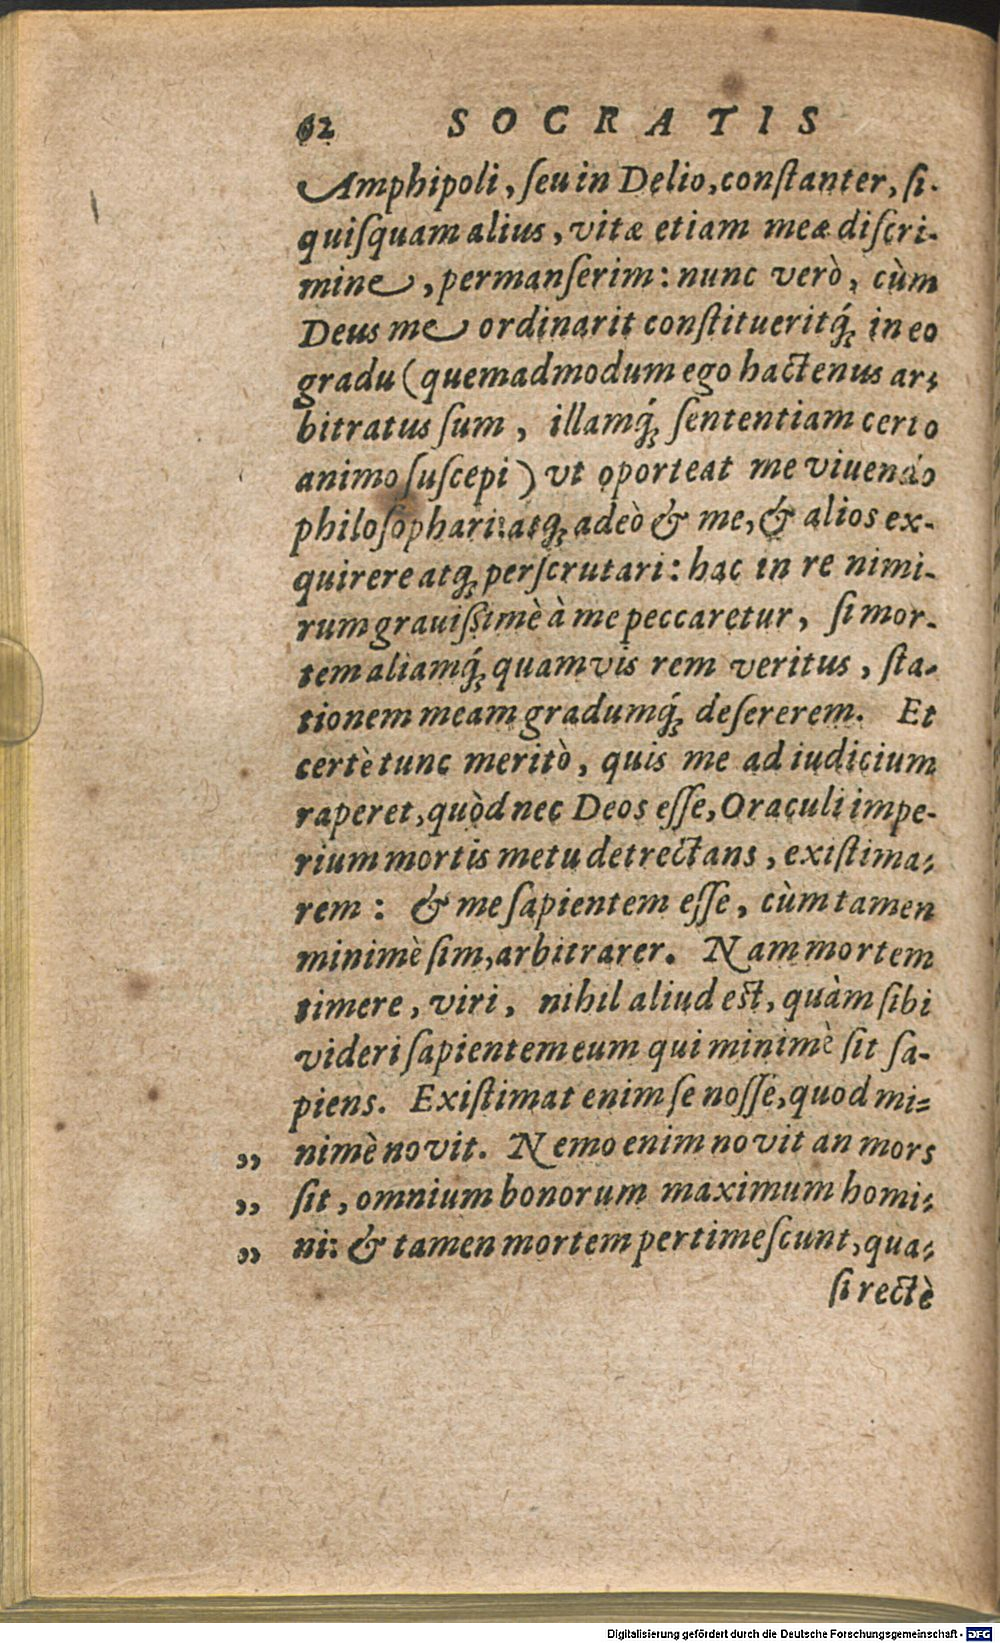 62 SOCRATIS
Amphipoli, ſeu in Delio, conſtanter, ſi-
quiſquam alius, vitæ etiam meæ diſcri-
mine, permanſerim: nunc verò, cùm
Deus me ordinarit conſtitueritq́ꝫ in eo
gradu (quemadmodum ego hactenus ar-
bitratus ſum, illamq́ꝫ ſententiam certo
animo ſuſcepi) vt oporteat me viuendo
philoſophari: atqꝫ adeò & me, & alios ex-
quirere atqꝫ perſcrutari: hac in re nimi-
rum grauiſſimè à me peccaretur, ſi mor-
tem aliamq́ꝫ quamvis rem veritus, ſta-
tionem meam gradumq́ꝫ deſererem. Et
certè tunc meritò, quis me ad iudicium
raperet, quòd nec Deos eſſe, Oraculi impe-
rium mortis metu detrectans, exiſtima-
rem: & me ſapientem eſſe, cùm tamen
minimè ſim, arbitrarer. Nam mortem
timere, viri, nihil aliud est, quàm ſibi
videri ſapientem eum qui minimè ſit ſa-
piens. Exiſtimat enim ſe noſſe, quod mi-
„ nimè novit. Nemo enim novit an mors
„ ſit, omnium bonorum maximum homi-
„ ni: & tamen mortem pertimeſcunt, qua-
ſi rectè
Digitalisierung gefördert durch die Deutsche Forschungsgemeinschaft - DFG